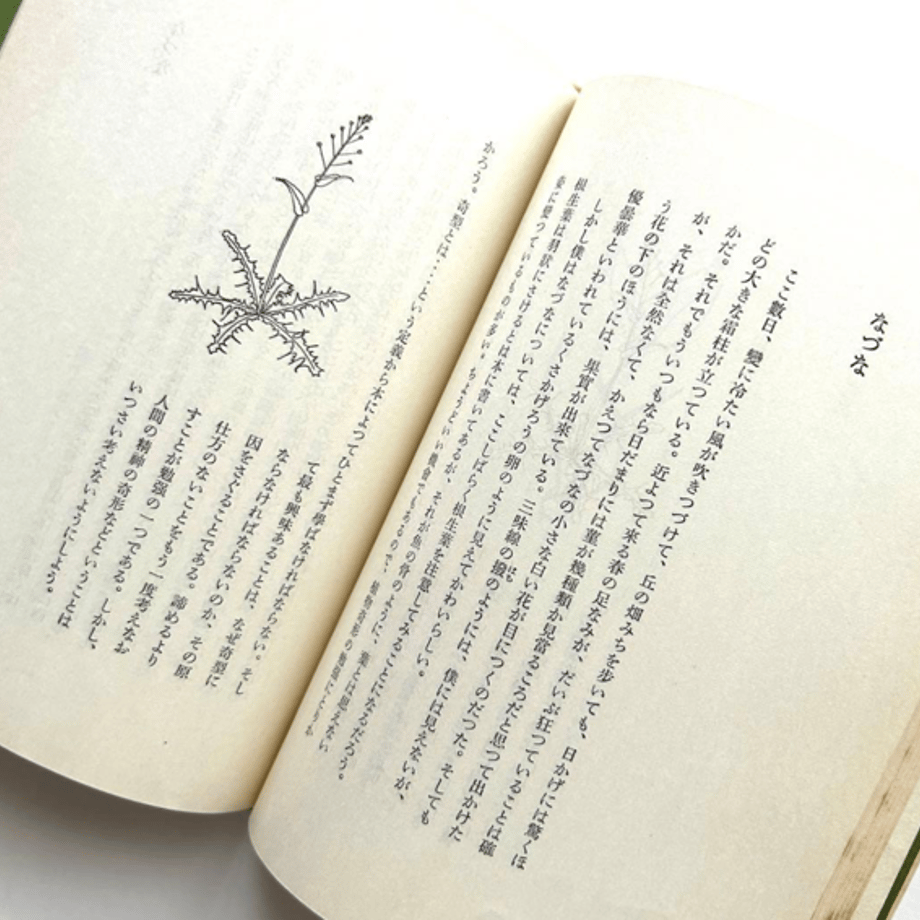 なづな
ここ數日、變に冷たい風が吹きつづけて、丘の畑みちを歩いても、日かげには驚くほ
どの大きな霜柱が立つている。近よつて来る春の足なみが、だいぶ狂つていることは確
かだ。それでもういつもなら日だまりには菫が幾種類か見當るころだと思つて出かけた
が、それは全然なくて、かえつてなづなの小さな白い花が目につくのだつた。そしても
う花の下のほうには、果實が出来ている。三味線の撥のようには、僕には見えないが、
ばち
優曇華といわれているくさかげろうの卵のように見えてかわいらしい。
しかし僕はなづなについては、ここしばらく根生葉を注意してみることになるだろう。
根生葉は羽状にさけるとは本に書いてあるが、それが魚の骨のように、葉とは思えない
姿に變つているものが多い。ちようどいい機會でもあるので、植物奇形の勉強にとりか
かろう。奇型とは…という定義から本によつてひとまず學ばなければならない。そし
て最も興味あることは、なぜ奇型に
ならなければならないのか、その原
因をさぐることである。諦めるより
仕方のないことをもう一度考えなお
すことが勉強の一つである。しかし、
人間の精神の奇形などということは
いつさい考えないようにしよう。